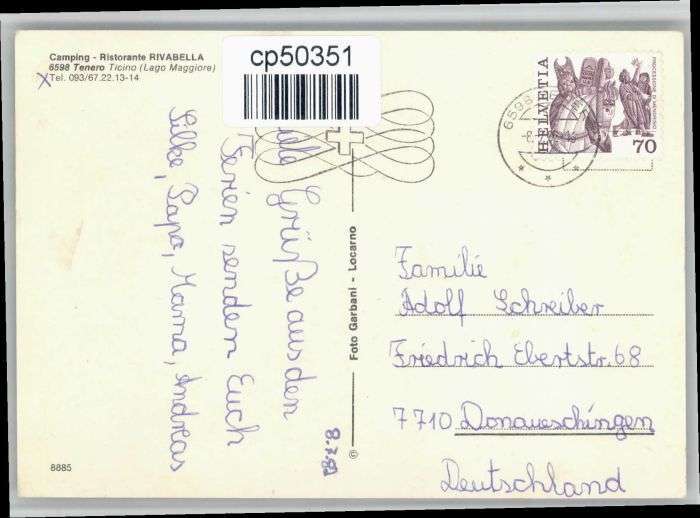 Camping - Ristorante RIVABELLA
6598 Tenero Ticino (Lago Maggiore)
Tel. 093/67.22.13-14
cp50351
HELVETIA
70
6598
Grüße aus den
Ferien senden Euch
Silke, Papa, Mama, Andreas
8.7.82
© Foto Garbani - Locarno
Familie
Adolf Schreiber
Friedrich Ebertstr. 68
7710 Donaueschingen
Deutschland
8885